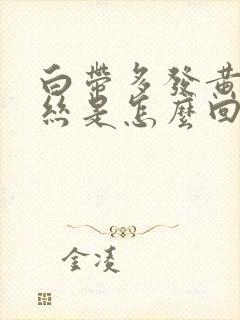 白帶多發黃
絲是怎麼回
金凌